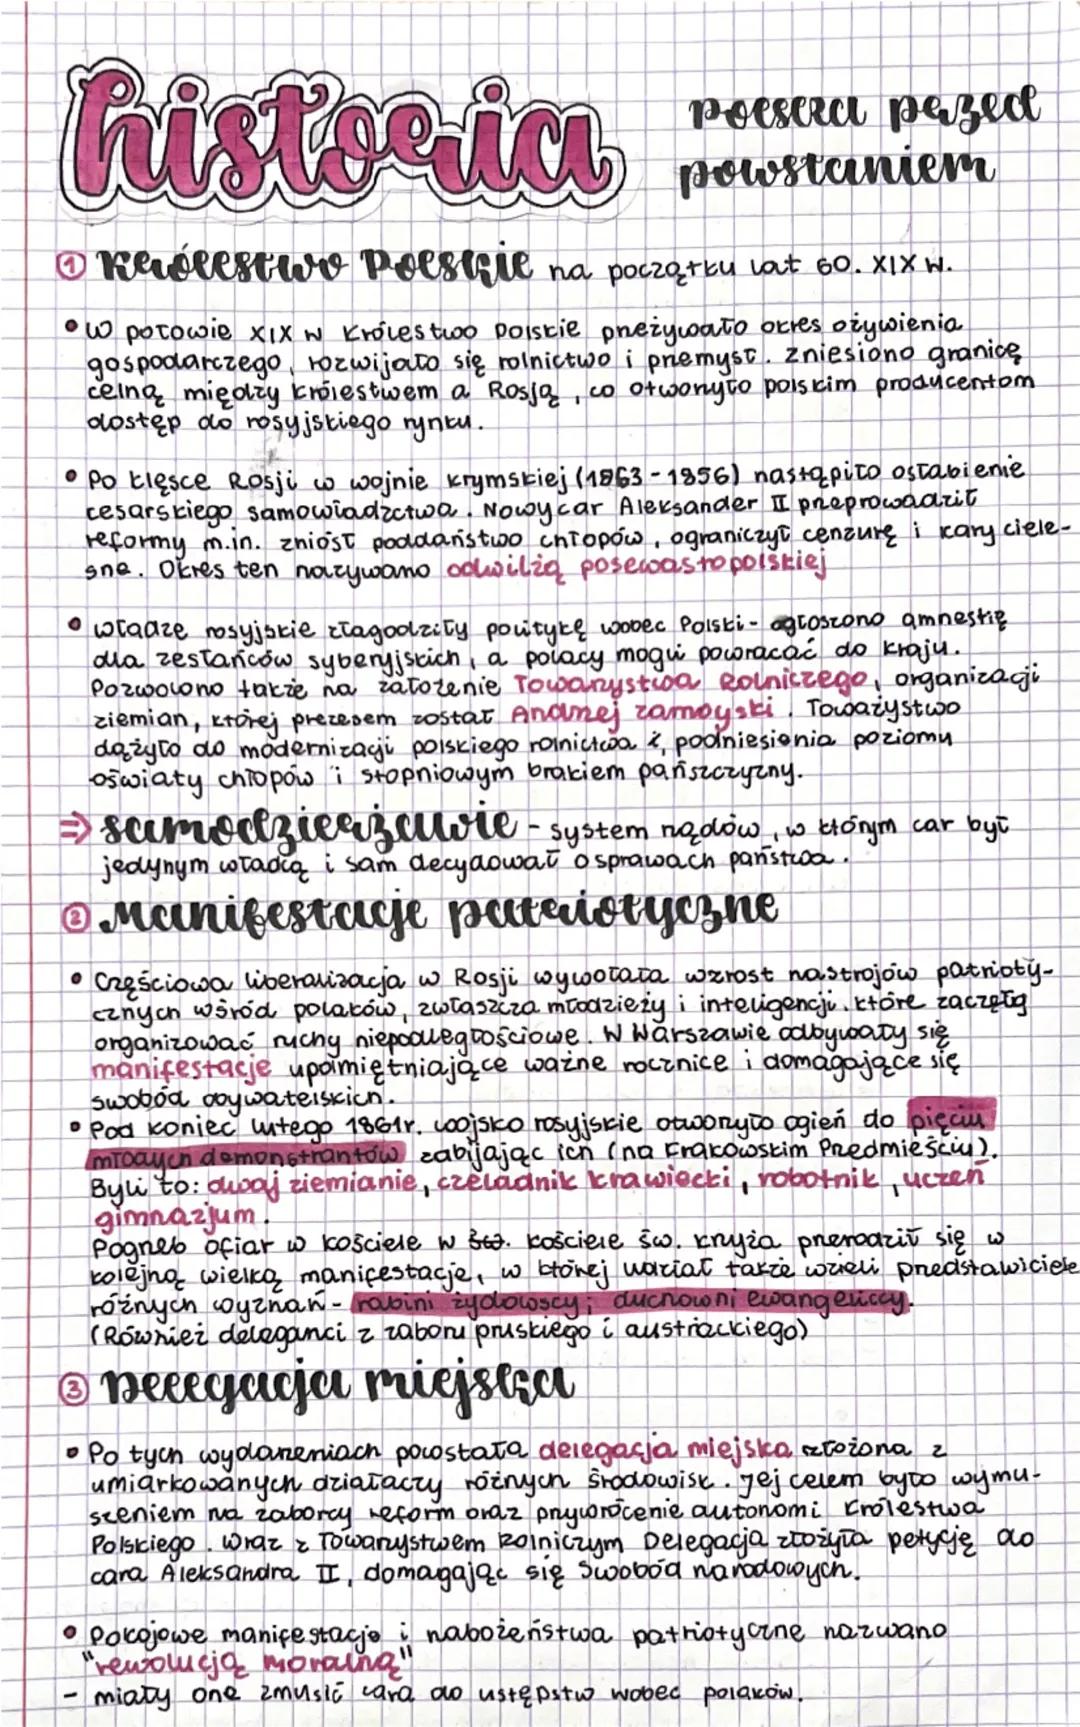 historia
Polska przed
powstaniem
① Królestwo Polskie na początku lat 60. XIX w.
• W połowie XIX w Królestwo Polskie przeżywało okres ożywienia
gospodarczego, rozwijało się rolnictwo i przemysł. Zniesiono granicę
celną między Królestwem a Rosją, co otworzyło polskim producentom
dostęp do rosyjskiego rynku.
• Po klęsce Rosji w wojnie krymskiej (1863-1856) nastąpiło osłabienie
cesarskiego samowładztwa. Nowy car Aleksander II przeprowadził
reformy m.in. zniósł poddaństwo chłopów, ograniczył cenzurę i kary ciele-
sne. Okres ten nazywano odwilżą posewastopolskiej
• Władze rosyjskie złagodziły politykę wobec Polski - ogłoszono amnestię
dla zesłańców syberyjskich, a polacy mogli powracać do kraju.
Pozwolono także na założenie Towarzystwa Rolniczego, organizacji
ziemian, której prezesem został Andrzej Zamoyski. Toważystwo
dążyło do modernizacji polskiego rolnictwa i, podniesienia poziomu
oświaty chłopów i stopniowym brakiem pańszczyzny.
⇒ samodzierżawie - system rządów, w którym car był
jedynym władcą i sam decydował o sprawach państwa.
② Manifestacje patriotyczne
• Częściowa liberalizacja w Rosji wywołała wzrost nastrojów patrioty-
cznych wśród polaków, zwłaszcza młodzieży i inteligencji. które zaczęły
organizować ruchy niepodległościowe. W Warszawie odbywały się
manifestacje upamiętniające ważne rocznice i domagające się
swobód obywatelskich.
• Pod koniec lutego 1861r. wojsko rosyjskie otworzyło ogień do pięciu
młodych demonstrantów zabijając ich (na Krakowskim Przedmieściu).
Byli to: dwaj ziemianie, czeladnik krawiecki, robotnik, uczeń
gimnazjum.
Pogrzeb ofiar w kościele w św. kościele św. krzyża przerodził się w
kolejną wielką manifestację, w której udział także wzieli przedstawiciele
różnych wyznań - rabini żydowscy; duchowni ewangeliccy.
(Również deleganci z zaboru pruskiego i austriackiego)
③ Delegacja miejska
• Po tych wydarzeniach powstała delegacja miejska złożona z
umiarkowanych działaczy różnych środowisk. Jej celem było wymu-
szeniem na zaborcy reform oraz przywrócenie autonomi Królestwa
Polskiego. Wraz z Towarzystwem Rolniczym Delegacja złożyła petycję do
cara Aleksandra II, domagając się swobód narodowych.
• Pokojowe manifestacje i nabożeństwa patriotyczne nazwano
"rewolucją moralną"
- miały one zmusić cara do ustępstw wobec polaków.